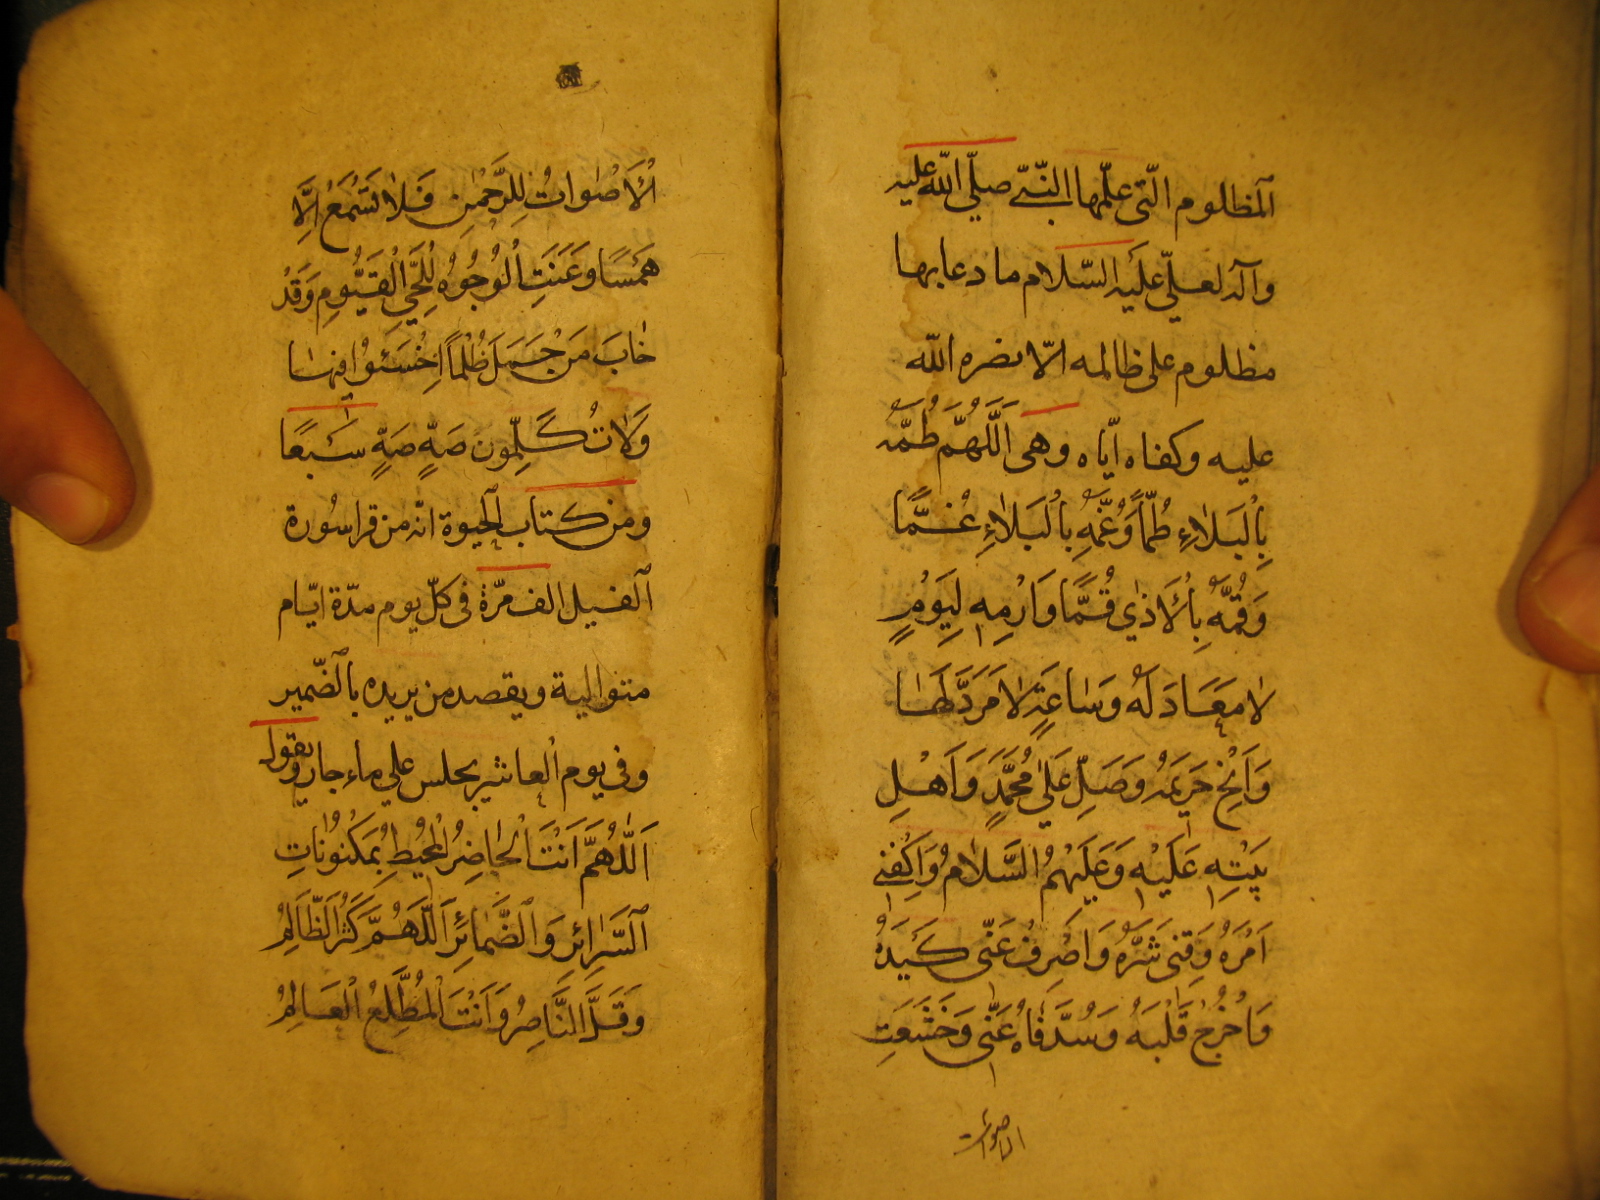 المظلوم الّتى علّمها النّبىّ صلّى اللّه عليه
وآله لعلىّ عليه السّلام ما دعا بها
مظلوم على ظالمه الّا نصره اللّه
عليه وكفاه ايّاه وهى اَللّٰهُمَّ طُمَّهُ
بِالْبَلاٰءِ طَمّاً وَغُمَّهُ بِالْبَلاٰءِ غَمًّا
وَقُمَّهُ بِالْاَذٰى قُمًّا وَارْمِهِ بِيَوْمٍ
لا مَعَادَ لَهُ وَسٰاعَةٍ لاٰ مَرَدَّ لَهٰا
وَاَبِحْ حَرِيمَهُ وَصَلِّ عَلىٰ مُحَمَّدٍ وَاَهْلِ
بَيْتِهِ عَلَيْهِ وَعَلَيْهِمُ السَّلاٰمُ وَاكْفِنِى
اَمْرَهُ وَقِنِى شَرَّهُ وَاصْرِفْ عَنّى كَيْدَهُ
وَاخْرُجْ قَلْبَهُ وَسُدَّ فٰاهُ عَنّى وَخَشَعَتِ
الاصوات
الْاَصْوٰاتُ لِلرَّحْمٰنِ فَلاٰ تَسْمَعُ اِلَّا
هَمْسًا وَعَنَتِ الْوُجُوهُ لِلْحَىِّ الْقَيُّومِ وَقَدْ
خٰابَ مَنْ حَمَلَ ظُلْماً اِخْسَئُوا فِيهٰا
وَلاٰ تُكَلِّمُونِ صَهٍ صَهٍ سَبْعًا
ومن كتاب الحيوة انّه من قرا سُورة
الفيل الف مرّة فى كلّ يوم مدّة ايّام
متوالية ويقصد من يريده بالضّمير
وفى يوم العاشر يجلس على ماء جار ويقول
اَللّٰهُمَّ اَنْتَ الْحٰاضِرُ الْمُحِيطُ بِمَكْنُونٰاتِ
السَّرٰائِرِ وَالضَّمٰائِرِ اَللّٰهُمَّ كَثُرَ الظّٰالِمُ
وَقَلَّ النّٰاصِرُ وَاَنْتَ الْمُطَّلِعُ الْعٰالِمُ